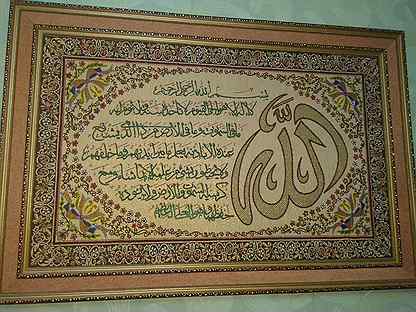 بسم الله الرحمن الرحيم
الله لا إله إلا هو الحي القيوم لا تأخذه سنة ولا نوم له
ما في السموات وما في الأرض من ذا الذي يشفع
عنده إلا بإذنه يعلم ما بين أيديهم وما خلفهم
ولا يحيطون بشيء من علمه إلا بما شاء وسع
كرسيه السموات والأرض ولا يئوده
حفظهما وهو العلي العظيم
الله